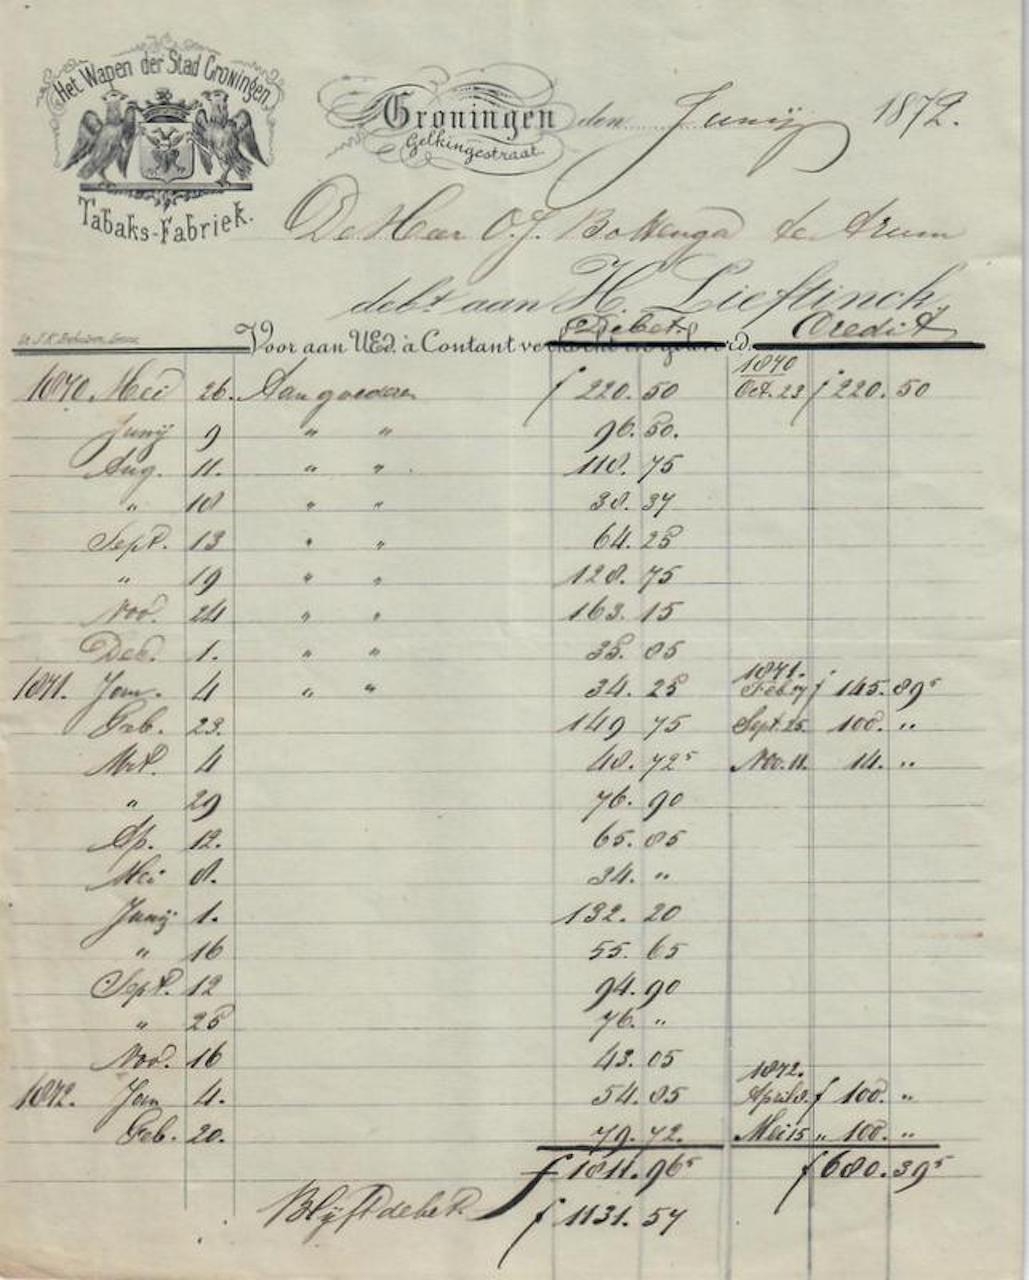 Het Wapen der Stad Groningen
Tabaks-Fabriek.
Groningen den Junij 1872.
Gelkingestraat.
De Heer O. J. Bottenga te Arum
debt aan H. Lieftinck,
Debet Credit
Voor aan UEd. à Contant verkocht en geleverd
1870
1870. Mei 26. Aan goederen f 220.50 Oct. 23 f 220.50
Junij 9 " " 96.50.
Aug. 11. " " 118.75
" 18 " " 38.37
Sept. 13 " " 64.25
" 19 " " 128.75
Nov. 24 " " 163.15
Dec. 1. " " 35.85
1871.
1871. Jan. 4 " " 34.25 Feb. 7 f 145.89⁵
Feb. 23. 149 75 Sept. 25. 100. "
Mrt. 4 48.72⁵ Nov. 11. 14. "
" 29 76.90
Ap. 12. 65.85
Mei 8. 34. "
Junij 1. 132.20
" 16 55.65
Sept. 12 94.90
" 25 76. "
Nov. 16 43.05
1872.
1872. Jan 4. 54.85 April 8. f 100. "
Feb. 20. 79.72. Mei 15 " 100. "
f 1811.96⁵ f 680.39⁵
Blijft debet f 1131.57